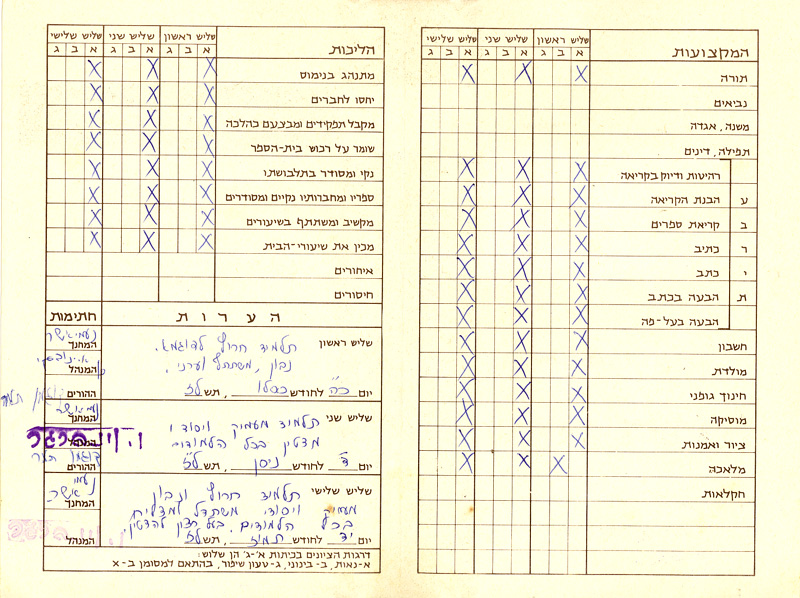 המקצועות
שליש ראשון
שליש שני
שליש שלישי
א ב ג
א ב ג
א ב ג
תורה X X X
נביאים
משנה, אגדה
תפילה, דינים
עברית
רהיטות ודיוק בקריאה X X X
הבנת הקריאה X X X
קריאת ספרים X X X
כתיב X X X
כתב X X X
הבעה בכתב X X X
הבעה בעל-פה X X X
חשבון X X X
מולדת X X X
חינוך גופני X X X
מוסיקה X X X
ציור ואמנות X X X
מלאכה X X X
חקלאות
הליכות
שליש ראשון
שליש שני
שליש שלישי
א ב ג
א ב ג
א ב ג
מתנהג בנימוס X X X
יחסו לחברים X X X
מקבל תפקידים ומבצעם כהלכה X X X
שומר על רכוש בית-הספר X X X
נקי ומסודר בתלבושתו X X X
ספריו ומחברותיו נקיים ומסודרים X X X
מקשיב ומשתתף בשיעורים X X X
מכין את שיעורי-הבית X X X
איחורים
חיסורים
הערות
חתימות
שליש ראשון
תלמיד חרוץ לדוגמא.
נבון, משתתף וערני.
יום כה לחודש כסלו, תשלז
המחנך
המנהל
ההורים
שליש שני
תלמיד מעמיק ויסודי
מצטין בכל הלמודים
יום ד לחודש ניסן, תשלז
המחנך
המנהל
ההורים
שליש שלישי
תלמיד חרוץ ונבון
מעמיק ויסודי. משתדל להצליח
בכל הלמודים. בעל רצון להצטין.
יום יד לחודש תמוז תשלז
המחנך
המנהל
דרגות הציונים בכיתות א'-ג' הן שלוש:
א-נאות, ב- בינוני, ג-טעון שיפור, בהתאם למסומן ב-x